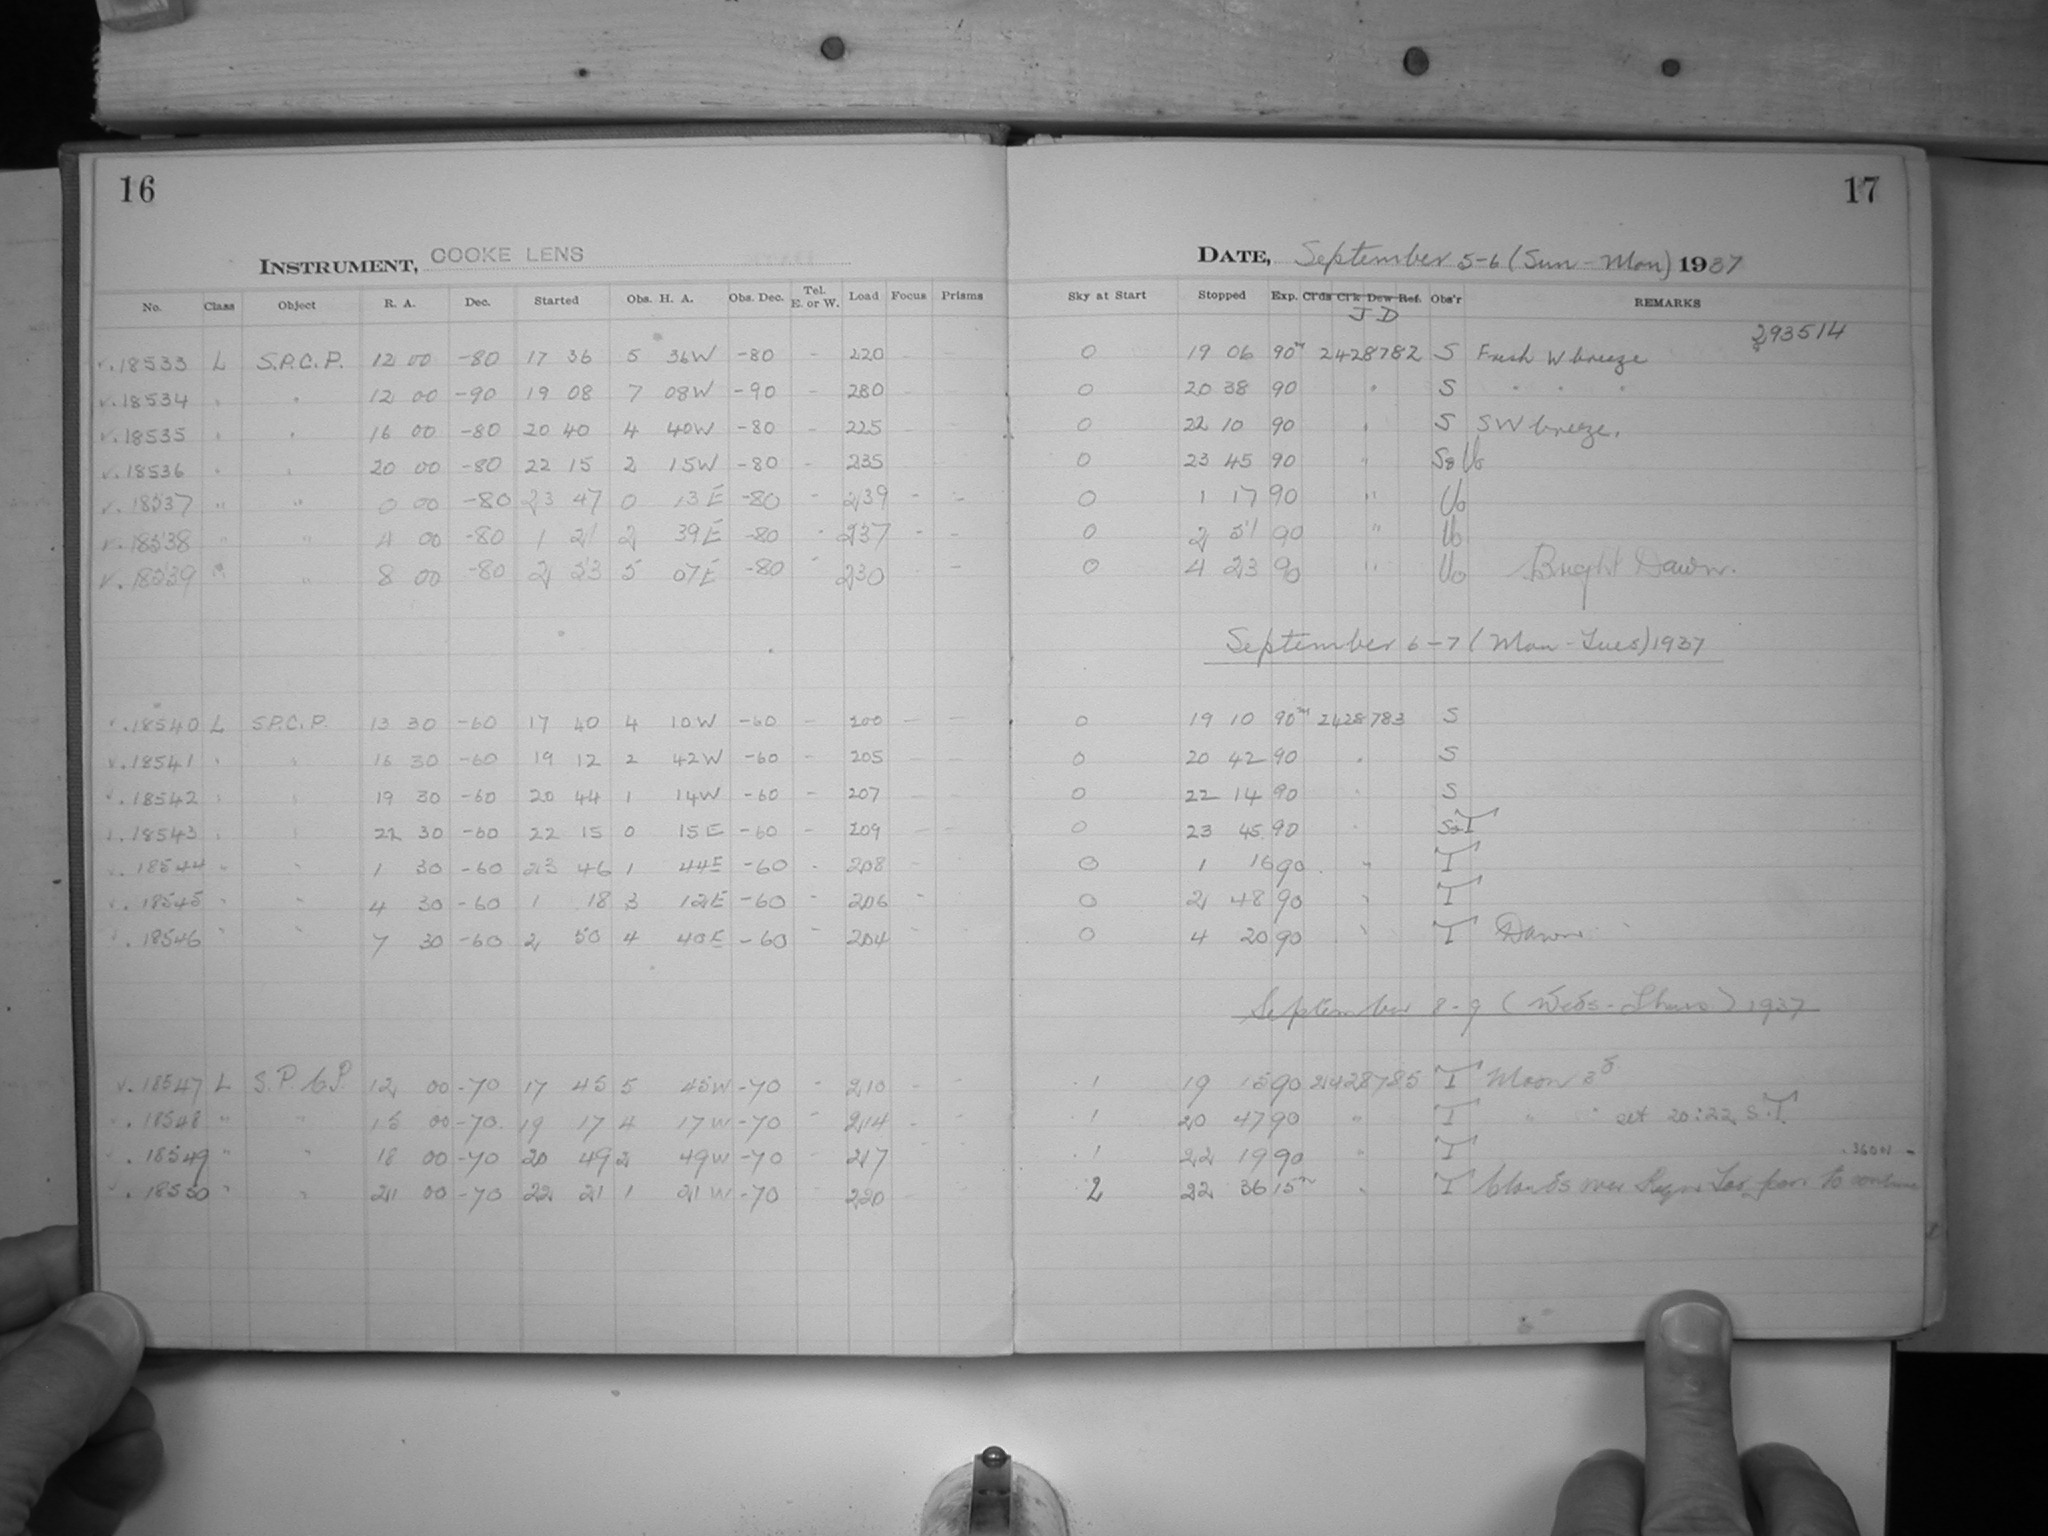 16
INSTRUMENT, COOKE LENS
No. Class Object R. A. Dec. Started Obs. H. A. Obs. Dec. Tel. E. or W. Load Focus Prisms
v. 18533 L S.P.C.P. 12 00 -80 17 36 5 36W -80 - 220
v. 18534 " " 12 00 -90 19 08 7 08W -90 - 230
v. 18535 " " 16 00 -80 20 40 4 40W -80 - 225
v. 18536 " " 20 00 -80 22 15 2 15W -80 - 235
v. 18537 " " 0 00 -80 23 47 0 13E -80 - 239 - -
v. 18538 " " 4 00 -80 1 21 2 39E -80 - 237 - -
v. 18539 " " 8 00 -80 2 53 5 07E -80 - 230 - -
v. 18540 L S.P.C.P. 13 30 -60 17 40 4 10W -60 - 200 - -
v. 18541 " " 16 30 -60 19 12 2 42W -60 - 205 - -
v. 18542 " " 19 30 -60 20 44 1 14W -60 - 207 - -
v. 18543 " " 22 30 -60 22 15 0 15E -60 - 209 - -
v. 18544 " " 1 30 -60 23 46 1 44E -60 - 208 - -
v. 18545 " " 4 30 -60 1 18 3 12E -60 - 206 - -
v. 18546 " " 7 30 -60 2 50 4 40E -60 - 204 - -
v. 18547 L S.P.C.P. 12 00 -70 17 45 5 45W -70 - 210 - -
v. 18548 " " 15 00 -70 19 17 4 17W -70 - 214 - -
v. 18549 " " 18 00 -70 20 49 2 49W -70 - 217 - -
v. 18550 " " 21 00 -70 22 21 1 21W -70 - 220 - -
17
DATE, September 5-6 (Sun - Mon) 1937
Sky at Start Stopped Exp. Cl'ds Cl'k Dew Ref. Obs'r REMARKS
J D
293514
0 19 06 90m 2428782 S Fresh W breeze
0 20 38 90 " S " " "
0 22 10 90 " S SW breeze.
0 23 45 90 "
0 1 17 90 "
0 2 51 90 "
0 4 23 90 " Bright Dawn.
September 6-7 (Mon - Tues) 1937
0 19 10 90m 2428783 S
0 20 42 90 " S
0 22 14 90 " S
0 23 45 90 " S&T
0 1 16 90 " T
0 2 48 90 " T
0 4 20 90 " T Dawn
September 8-9 (Weds - Thurs) 1937
1 19 15 90 2428785 T Moon 3d
1 20 47 90 " T " " set 20:22 S.T.
1 22 19 90 " T
2 22 36 15m " T Clouds over Region Too poor to continue